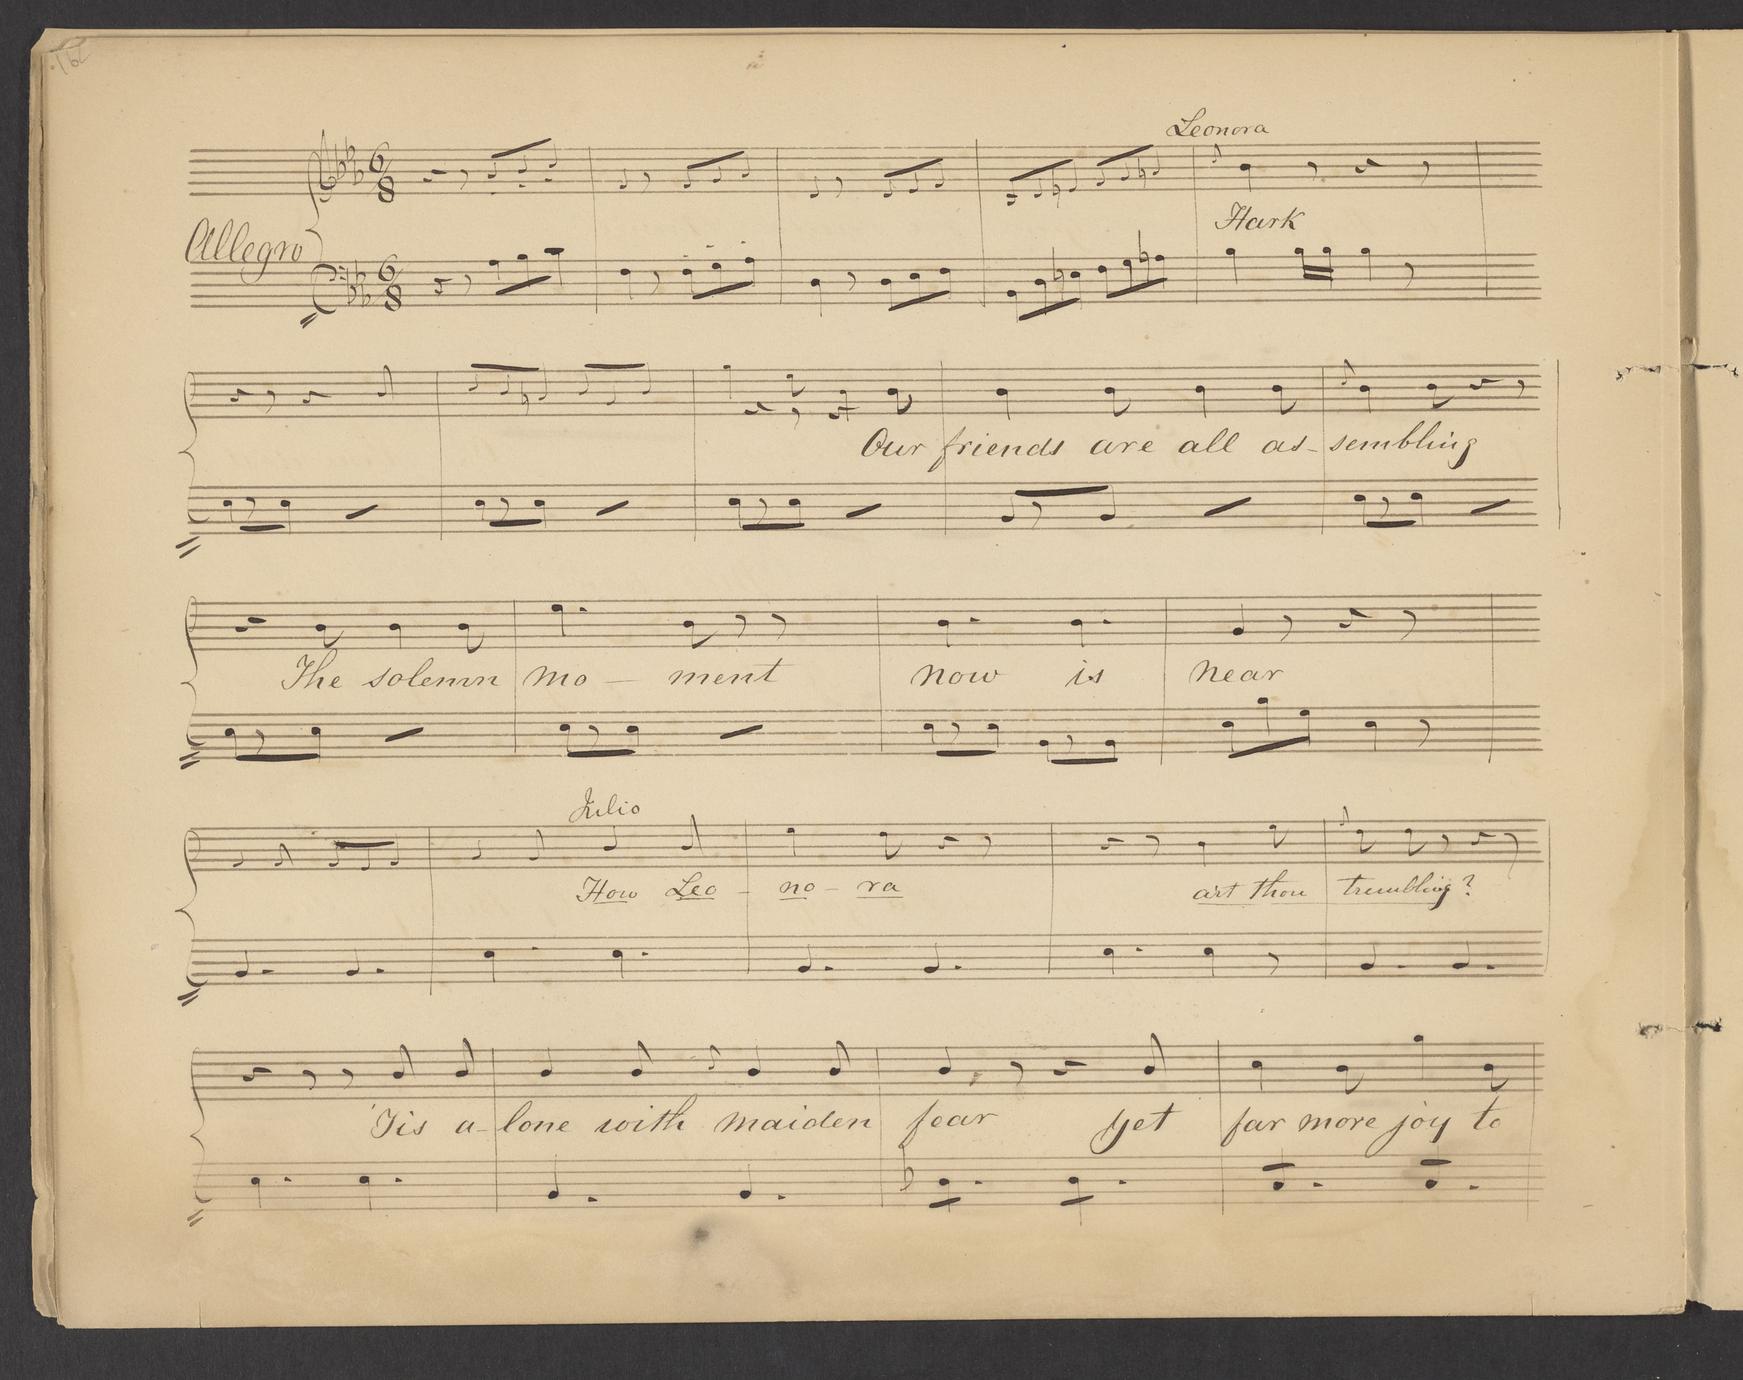 Leonora
6/8
Allegro
6/8
Hark
Our friends are all as- sembling
The solemn mo — ment now is near
Julio
How Leo - no - ra art thou trembling?
'Tis a- lone with maiden fear yet far more joy to